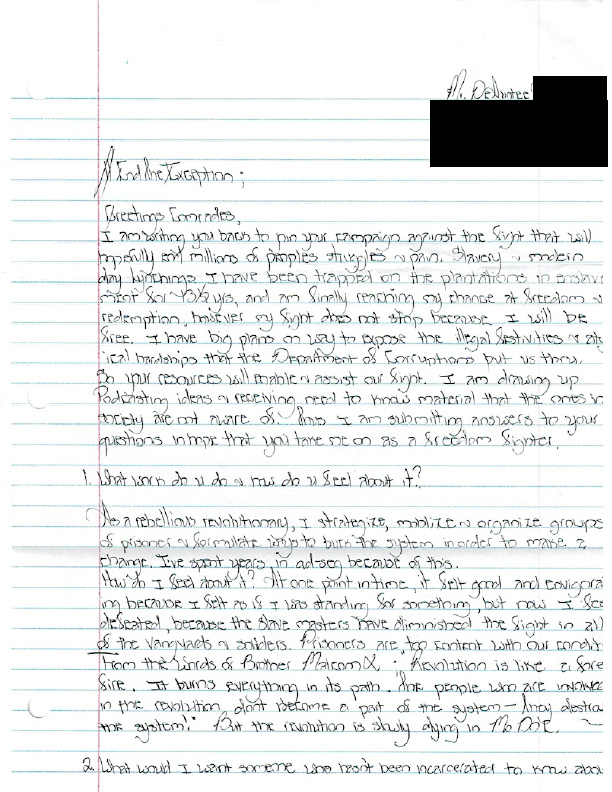 Mr. DeShuntee
End The Exception;
Greetings Comrades,
I am writing you back to join your campaign against the fight that will
hopefully end millions of peoples struggles n pain. Slavery n modern
day lynchings I have been trapped on the plantations in enslave
ment for 43½ yrs, and am finally reaching my chance at freedom n
redemption, however my fight does not stop because I will be
free. I have big plans on way to expose the illegal festivities n
ical hardships that the Department of Corruptions put us thru.
So your resources will enable n assist our fight. I am drawing up
Podcasting ideas n receiving need to know material that the ones in
society are not aware of. Thus I am submitting answers to your
questions in hope that you take me on as a freedom fighter.
1. What work do u do n how do u feel about it?
As a rebellious revolutionary, I strategize, mobilize n organize groups
of prisoner n formulate ways to burn the system in order to make a
change. I've spent years in ad-seg because of this.
How do I feel about it? At one point in time, it felt good and envigora
ing because I felt as if I was standing for something, but now I feel
defeated, because the slave masters have diminished the fight in all
of the vanguards n soliders. Prisoners are too content with our condit
From the Words of Brother Malcom X: "Revolution is like a fore
fire. It burns everything in its path. The people who are involved
in the revolution don't become a part of the system - they destro
the system". But the revolution is slowly dying in Mo D.O.C. ~
2. What would I want someone who hasn't been incarcerated to know abou